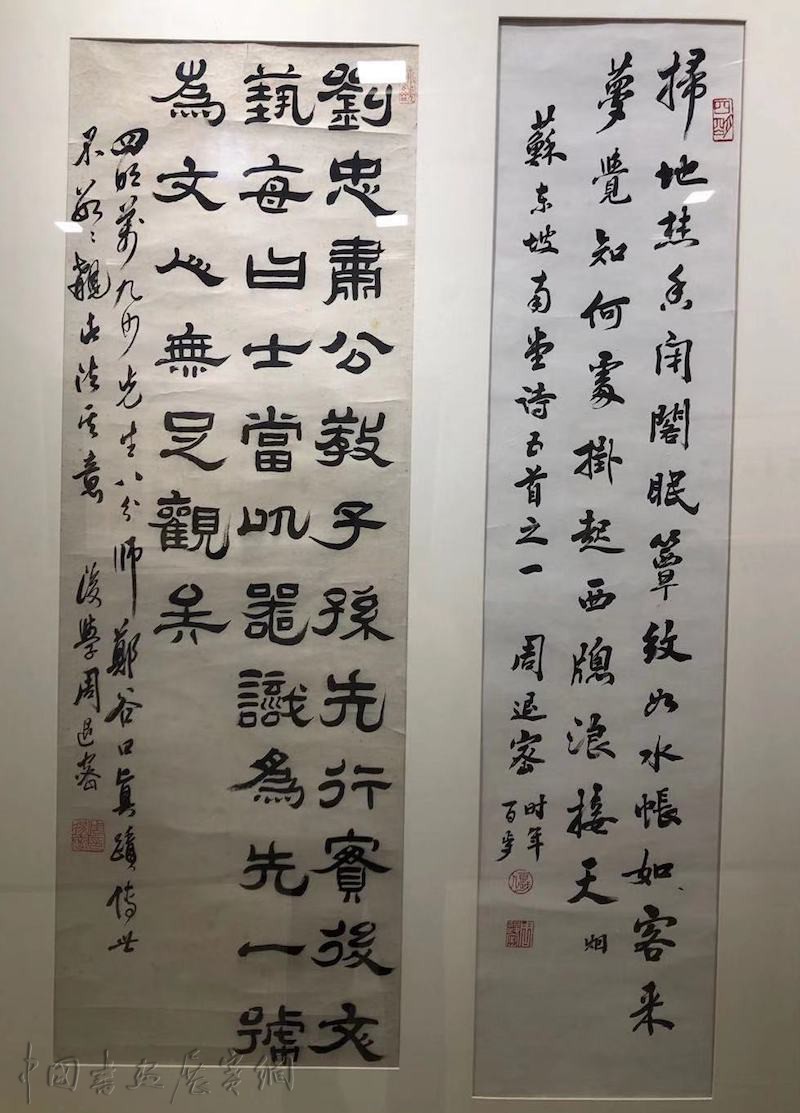 掃地焚香闭閣眠簟紋如水帳如客来
夢覺知何處掛起西牕浪接天 烟
蘇东坡南堂诗五首之一 周退密 时年
百岁
劉忠肅公教子孫先行實後文
藝每曰士當以器識為先一號
為文人無足觀矣
四明萬九沙先生八分師鄭谷口真蹟傳世
不數〻覯此法其意 後學周退密
中国書法展賽網